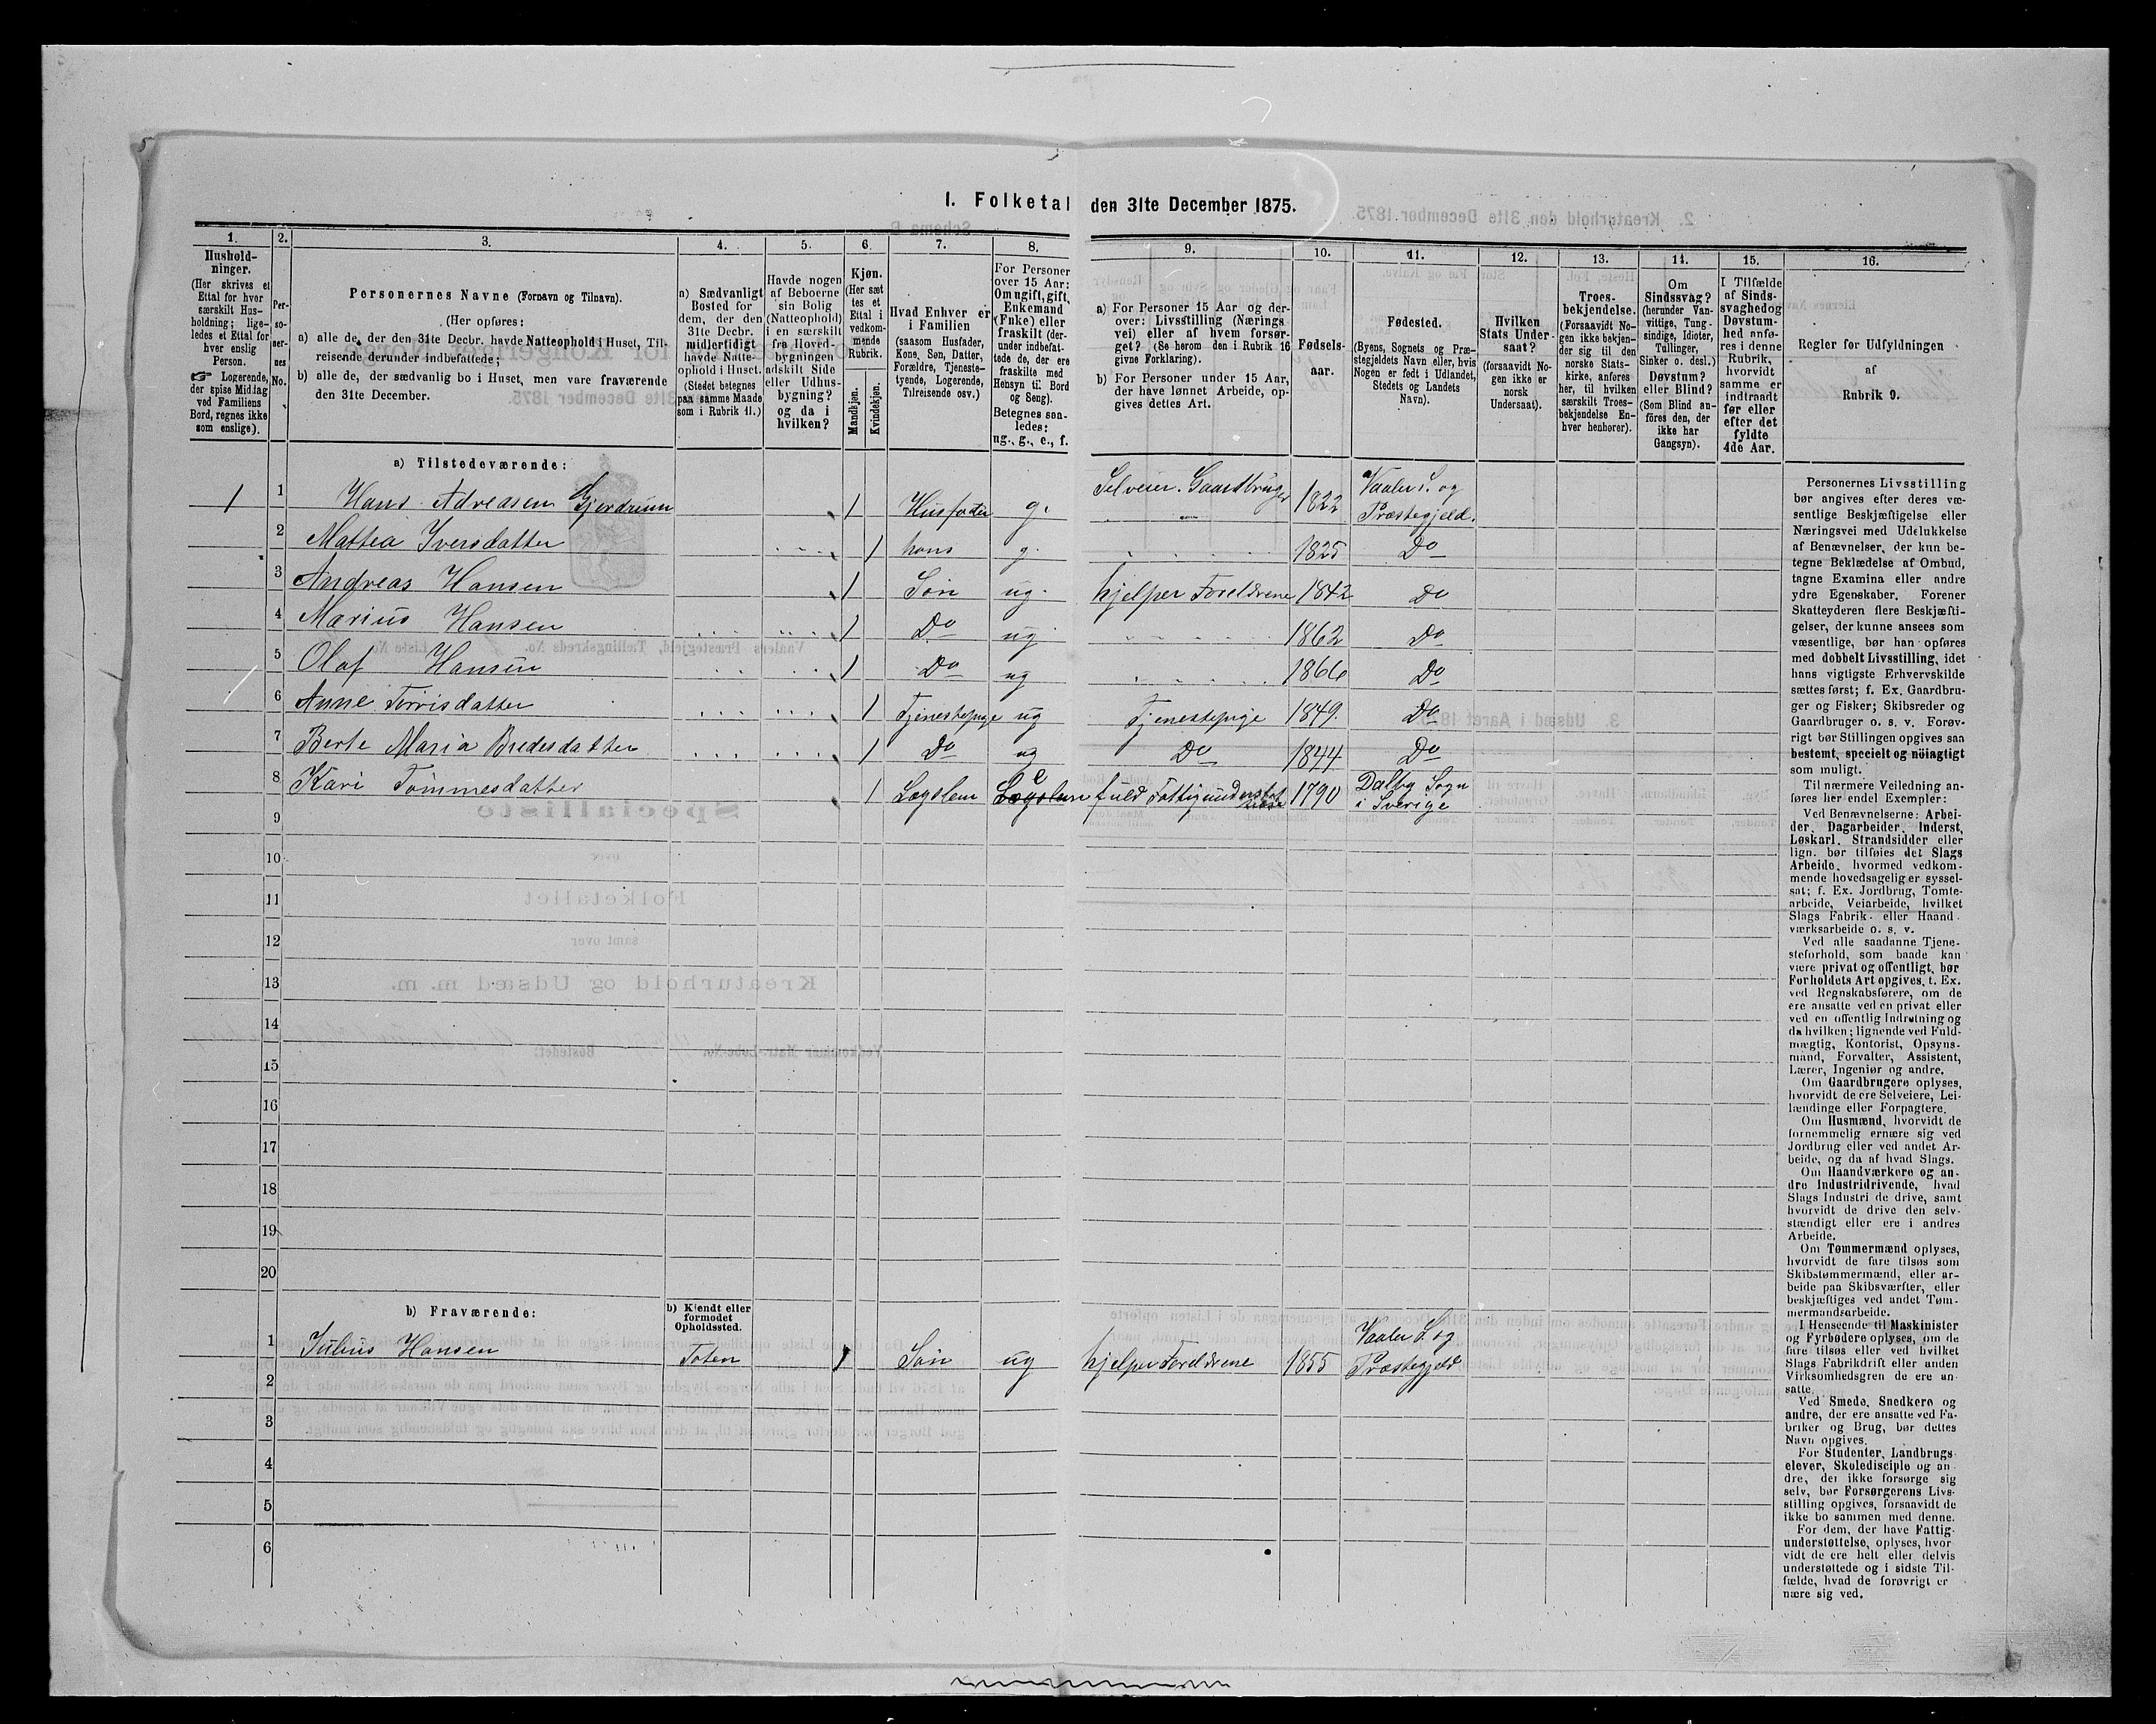 1. Folketal den 31te December 1875.
1.
Hushold-
ninger.
(Her skrives et
Ettal for hver
særskilt Hus-
holdning; lige-
ledes et Ettal for
hver enslig
Person.
☞ Logerende,
der spise Middag
ved Familiens
Bord, regnes ikke
som enslige).
2.
Per-
so-
ner-
nes
No.
3.
Personernes Navne (Fornavn og Tilnavn).
(Her opføres:
a) alle de, der den 31te Decbr. havde Natteophold i Huset, Til-
reisende derunder indbefattede;
b) alle de, der sædvanlig bo i Huset, men vare fraværende
den 31te December.
4.
a) Sædvanligt
Bosted for
dem, der den
31te Decbr.
midlertidigt
havde Natte-
ophold i Huset.
(Stedet betegnes
paa samme Maade
som i Rubrik 11.)
5.
Havde nogen
af Beboerne
sin Bolig
(Natteophold)
i en særskilt
fra Hoved-
bygningen
adskilt Side
eller Udhus-
bygning?
og da i
hvilken?
6.
Kjøn.
(Her sæt
tes et
Ettal i
vedkom-
mende
Rubrik.
Mandkjøn.
Kvindekjøn.
7.
Hvad Enhver er
i Familien
(saasom Husfader,
Kone, Søn, Datter,
Forældre, Tjeneste-
tyende, Logerende,
Tilreisende osv.)
8.
For Personer
over 15 Aar:
Om ugift, gift,
Enkemand
(Enke) eller
fraskilt (der-
under indbefat-
tede de, der ere
fraskilte med
Hensyn til Bord
og Seng).
Betegnes saa-
ledes:
ug., g., e., f.
9.
a) For Personer 15 Aar og der-
over: Livsstilling (Nærings
vei) eller af hvem forsør-
get? (Se herom den i Rubrik 16
givne Forklaring).
b) For Personer under 15 Aar,
der have lønnet Arbeide, op-
gives dettes Art.
10.
Fødsels-
aar.
11.
Fødested.
(Byens, Sognets og Præ-
stegjeldets Navn eller, hvis
Nogen er født i Udlandet,
Stedets og Landets
Navn).
12.
Hvilken
Stats Under-
saat?
(forsaavidt No-
gen ikke er
norsk
Undersaat).
13.
Troes-
bekjendelse.
(Forsaavidt No-
gen ikke bekjen-
der sig til den
norske Stats-
kirke, anføres
her, til hvilken
særskilt Troes-
bekjendelse En-
hver henhører).
14.
Om
Sindssvag?
(herunder Van-
vittige, Tung-
sindige, Idioter,
Tullinger,
Sinker o. desl.)
Døvstum?
eller Blind?
(Som Blind an-
føres den, der
ikke har
Gangsyn).
15.
I Tilfælde
af Sinds-
svaghed og
Døvstum-
hed anfø-
res i denne
Rubrik,
hvorvidt
samme er
indtraadt
før eller
efter det
fyldte
4de Aar.
16.
Regler for Udfyldningen
af
Rubrik 9.
a) Tilstedeværende:
1 1 Hans Adreasen Gjerdrum 1 Husfader g. Selveier. Gaardbruger 1822 Vaaler S. og
Præstegjeld.
2 Mattea Iversdatter 1 hans g. 1825 Do
3 Andreas Hansen 1 Søn ug. hjelper Foreldrene 1842 Do
4 Marius Hansen 1 Do ug 1862 Do
5 Olaf Hansen 1 Do ug 1866 Do
6 Anne Torrisdatter 1 Tjenestepige ug Tjenestepige 1849. Do
7 Berte Maria Bredesdatter 1 Do ug Do 1844 Do
8 Kari Tommesdatter 1 Lægslem e Lægslem fuld Fattigunderstøt 1790 Dalby Sogn
i Sverige
9
10
11
12
13
14
15
16
17
18
19
20
b) Fraværende:
b) Kjendt eller
formodet
Opholdssted.
1 Julius Hansen Toten 1 Søn ug hjelper Foreldrene 1855 Vaaler S. og
Præstegjeld
2
3
4
5
6
Personernes Livsstilling
bør angives efter deres væ-
sentlige Beskjæftigelse eller
Næringsvei med Udelukkelse
af Benævnelser, der kun be-
tegne Beklædelse af Ombud,
tagne Examina eller andre
ydre Egenskaber. Forener
Skatteyderen flere Beskjæfti-
gelser, der kunne ansees som
væsentlige, bør han opføres
med dobbelt Livsstilling, idet
hans vigtigste Erhvervskilde
sættes først; f. Ex. Gaardbru-
ger og Fisker; Skibsreder og
Gaardbruger o. s. v. Forøv-
rigt bør Stillingen opgives saa
bestemt, specielt og nöiagtigt
som muligt.
Til nærmere Veiledning an-
føres her endel Exempler:
Ved Benævnelserne: Arbei-
der, Dagarbeider, Inderst,
Løskarl, Strandsidder eller
lign. bør tilføies det Slags
Arbeide, hvormed vedkom-
mende hovedsagelig er syssel-
sat; f. Ex. Jordbrug, Tomte-
arbeide, Veiarbeide, hvilket
Slags Fabrik- eller Haand-
værksarbeide o. s. v.
Ved alle saadanne Tjene-
steforhold, som baade kan
være privat og offentligt, bør
Forholdets Art opgives, f. Ex.
ved Regnskabsførere, om de
ere ansatte ved en privat eller
ved en offentlig Indretning og
da hvilken; lignende ved Fuld-
mægtig, Kontorist, Opsyns-
mand, Forvalter, Assistent,
Lærer, Ingeniør og andre.
Om Gaardbrugere oplyses,
hvorvidt de ere Selveiere, Lei-
lændinge eller Forpagtere.
Om Husmænd, hvorvidt de
fornemmelig ernære sig ved
Jordbrug eller ved andet Ar-
beide, og da af hvad Slags.
Om Haandværkere og an-
dre Industridrivende, hvad
Slags Industri de drive, samt
hvorvidt de drive den selv-
stændigt eller ere i andres
Arbeide.
Om Tømmermænd oplyses,
hvorvidt de fare tilsøs som
Skibstømmermænd, eller ar-
beide paa Skibsværfter, eller
beskjæftiges ved andet Tøm-
mermandsarbeide.
I Henseende til Maskinister
og Fyrbødere oplyses, om de
fare tilsøs eller ved hvilket
Slags Fabrikdrift eller anden
Virksomhedsgren de ere an-
satte.
Ved Smede, Snedkere og
andre, der ere ansatte ved Fa-
briker og Brug, bør dettes
Navn opgives.
For Studenter, Landbrugs-
elever, Skoledisciple og an-
dre, der ikke forsørge sig
selv, bør Forsørgerens Livs-
stilling opgives, forsaavidt de
ikke bo sammen med denne.
For dem, der have Fattig-
understøttelse, oplyses, hvor-
vidt de ere helt eller delvis
understøttede og i sidste Til-
fælde, hvad de forøvrigt er-
nære sig ved.